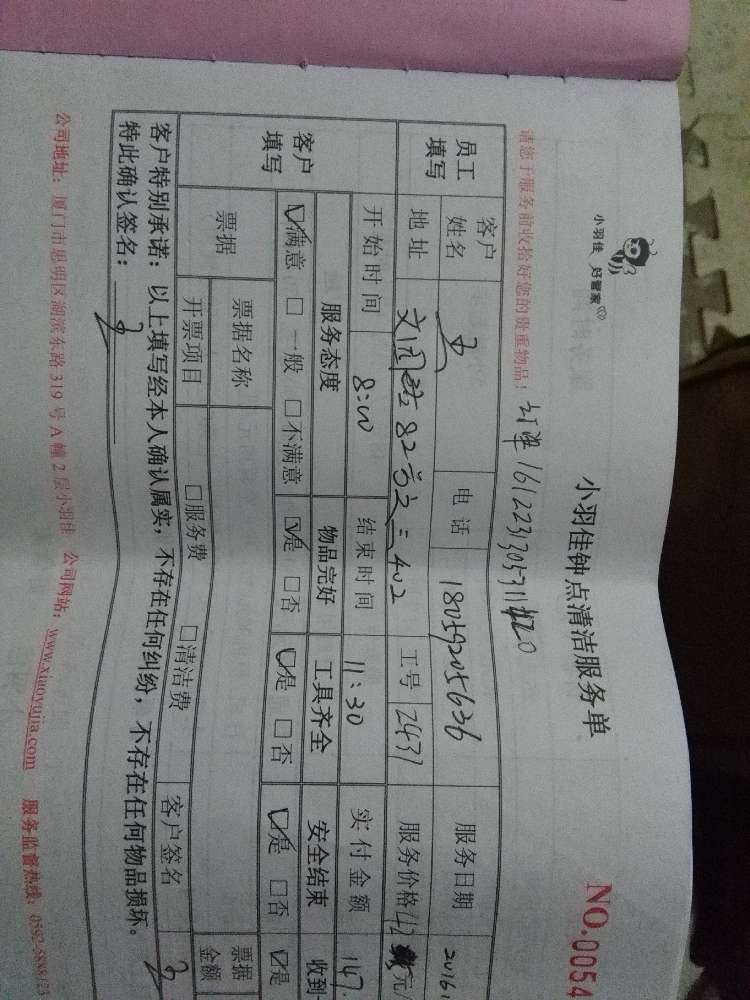 小羽佳 好管家
小羽佳钟点清洁服务单
NO.0054
请您于服务前收拾好您的贵重物品！
161223130531
员工填写
客户姓名
电话 18059205636
服务日期 2016
地址
82 402
工号 2437
服务价格 42 元/
开始时间 8:00
结束时间 11:30
实付金额 147.
客户填写
服务态度 物品完好 工具齐全 安全结束 收到
☑满意 □一般 □不满意 ☑是 □否 ☑是 □否 ☑是 □否 ☑是
票据
票据名称
票据金额
开票项目 □服务费 □清洁费 客户签名
客户特别承诺：以上填写经本人确认属实，不存在任何纠纷，不存在任何物品损坏。
特此确认签名：
公司地址：厦门市思明区湖滨东路319号A幢2层小羽佳 公司网站：www.xiaoyujia.com 服务监督热线：0592-5888123